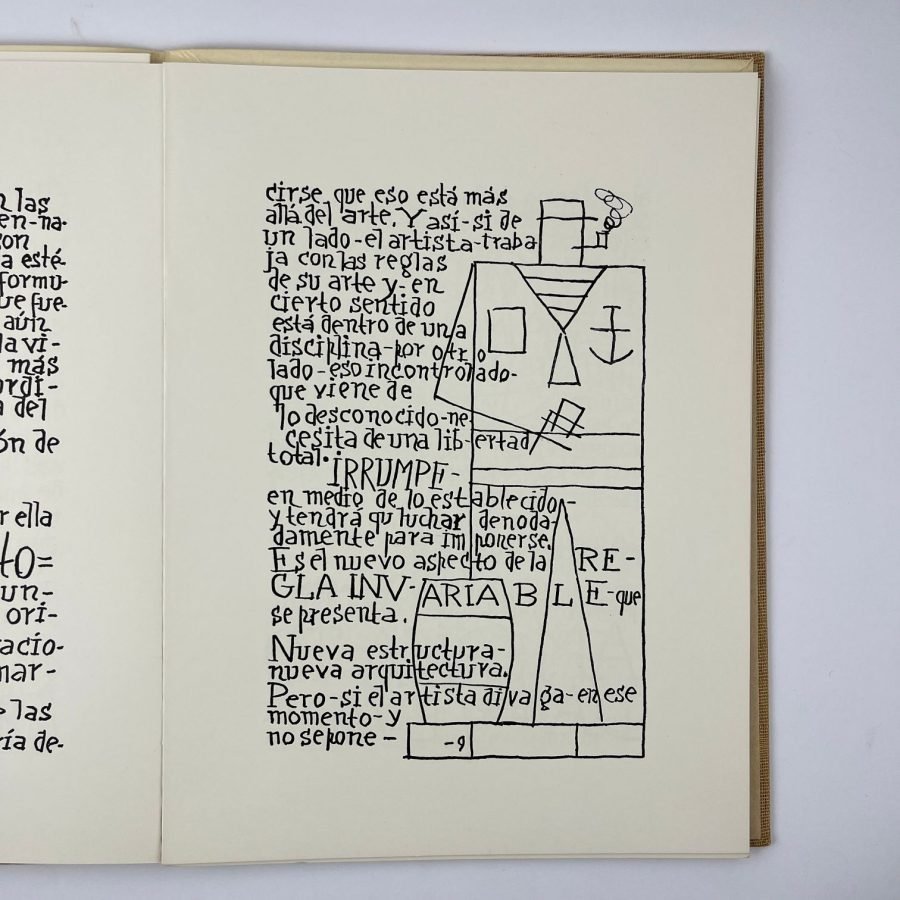 n las
en-na-
son
a esté-
formu-
ue fue-
aún
la vi-
más
ordi-
a del
ón de
r ella
to=
un-
ori-
racio-
mar-
las
ría de-
cirse que eso está más
allá del arte. Y así-si de
un lado-el artista-traba
ja con las reglas
de su arte y-en
cierto sentido
está dentro de una
disciplina-por otro
lado-eso incontrolado-
que viene de
lo desconocido-ne
cesita de una libertad
total.
IRRUMPE-
en medio de lo establecido-
y tendrá qu luchar denoda-
damente para imponerse.
Es el nuevo aspecto de la RE-
GLA INV-ARIABLE-que
se presenta.
Nueva estructura-
nueva arquitectura.
Pero-si el artista divaga-en ese
momento-y
no se pone -
-9